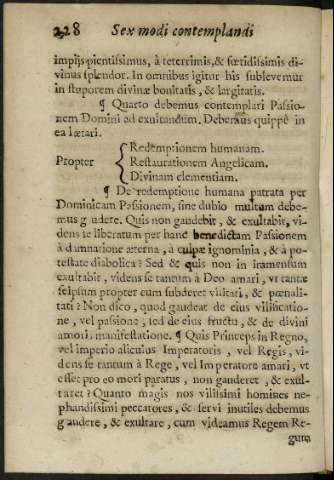 228 Sex modi contemplandi
impijs pientissimus, à teterrimis, & fœtidissimis di-
vinus splendor. In omnibus igitur his sublevemur
in stuporem divinæ bonitatis, & largitatis.
¶ Quarto debemus contemplari Passio-
nem Domini ad exultandum. Debemus quippè in
ea lætari.
Redemptionem humanam.
Propter Restaurationem Angelicam.
Divinam clementiam.
¶ De redemptione humana patrata per
Dominicam Passionem, sine dubio multum debe-
mus g udere. Quis non gaudebit, & exultabit, vi-
dens se liberatum per hanc benedictam Passionem
à damnatione æterna, à culpæ ignominia, & à po-
testate diabolica? Sed & quis non in immensum
exultabit, videns se tantùm à Deo amari, vt tantæ
seipsum propter eum subderet vilitati, & pœnali-
tati? Non dico, quod gaudeat de eius vilificatio-
ne, vel passione, sed de eius fructu, & de divini
amoris manifestatione. ¶ Quis Princeps in Regno,
vel imperio alicuius Imperatoris, vel Regis, vi-
dens se tantùm à Rege, vel Imperatore amari, vt
esset pro eo mori paratus, non gauderet, & exul-
taret? Quanto magis nos vilissimi homines ne-
phandissimi peccatores, & servi inutiles debemus
gaudere, & exultare, cum videamus Regem Re-
gum